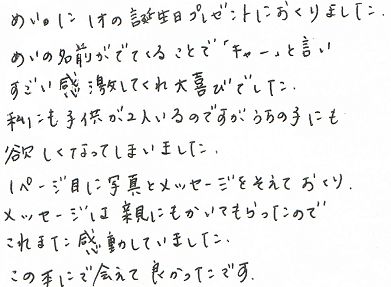 めいっ子に1才の誕生日プレゼントにおくりました。
めいの名前がでてくることで「キャー」と言い
すごい感激してくれ大喜びでした。
私にも子供が2人いるのですがうちの子にも
欲しくなってしまいました。
1ページ目に写真とメッセージをそえておくり、
メッセージは親にもかいてもらったので
これまた感動していました。
この本にで会えて良かったです。